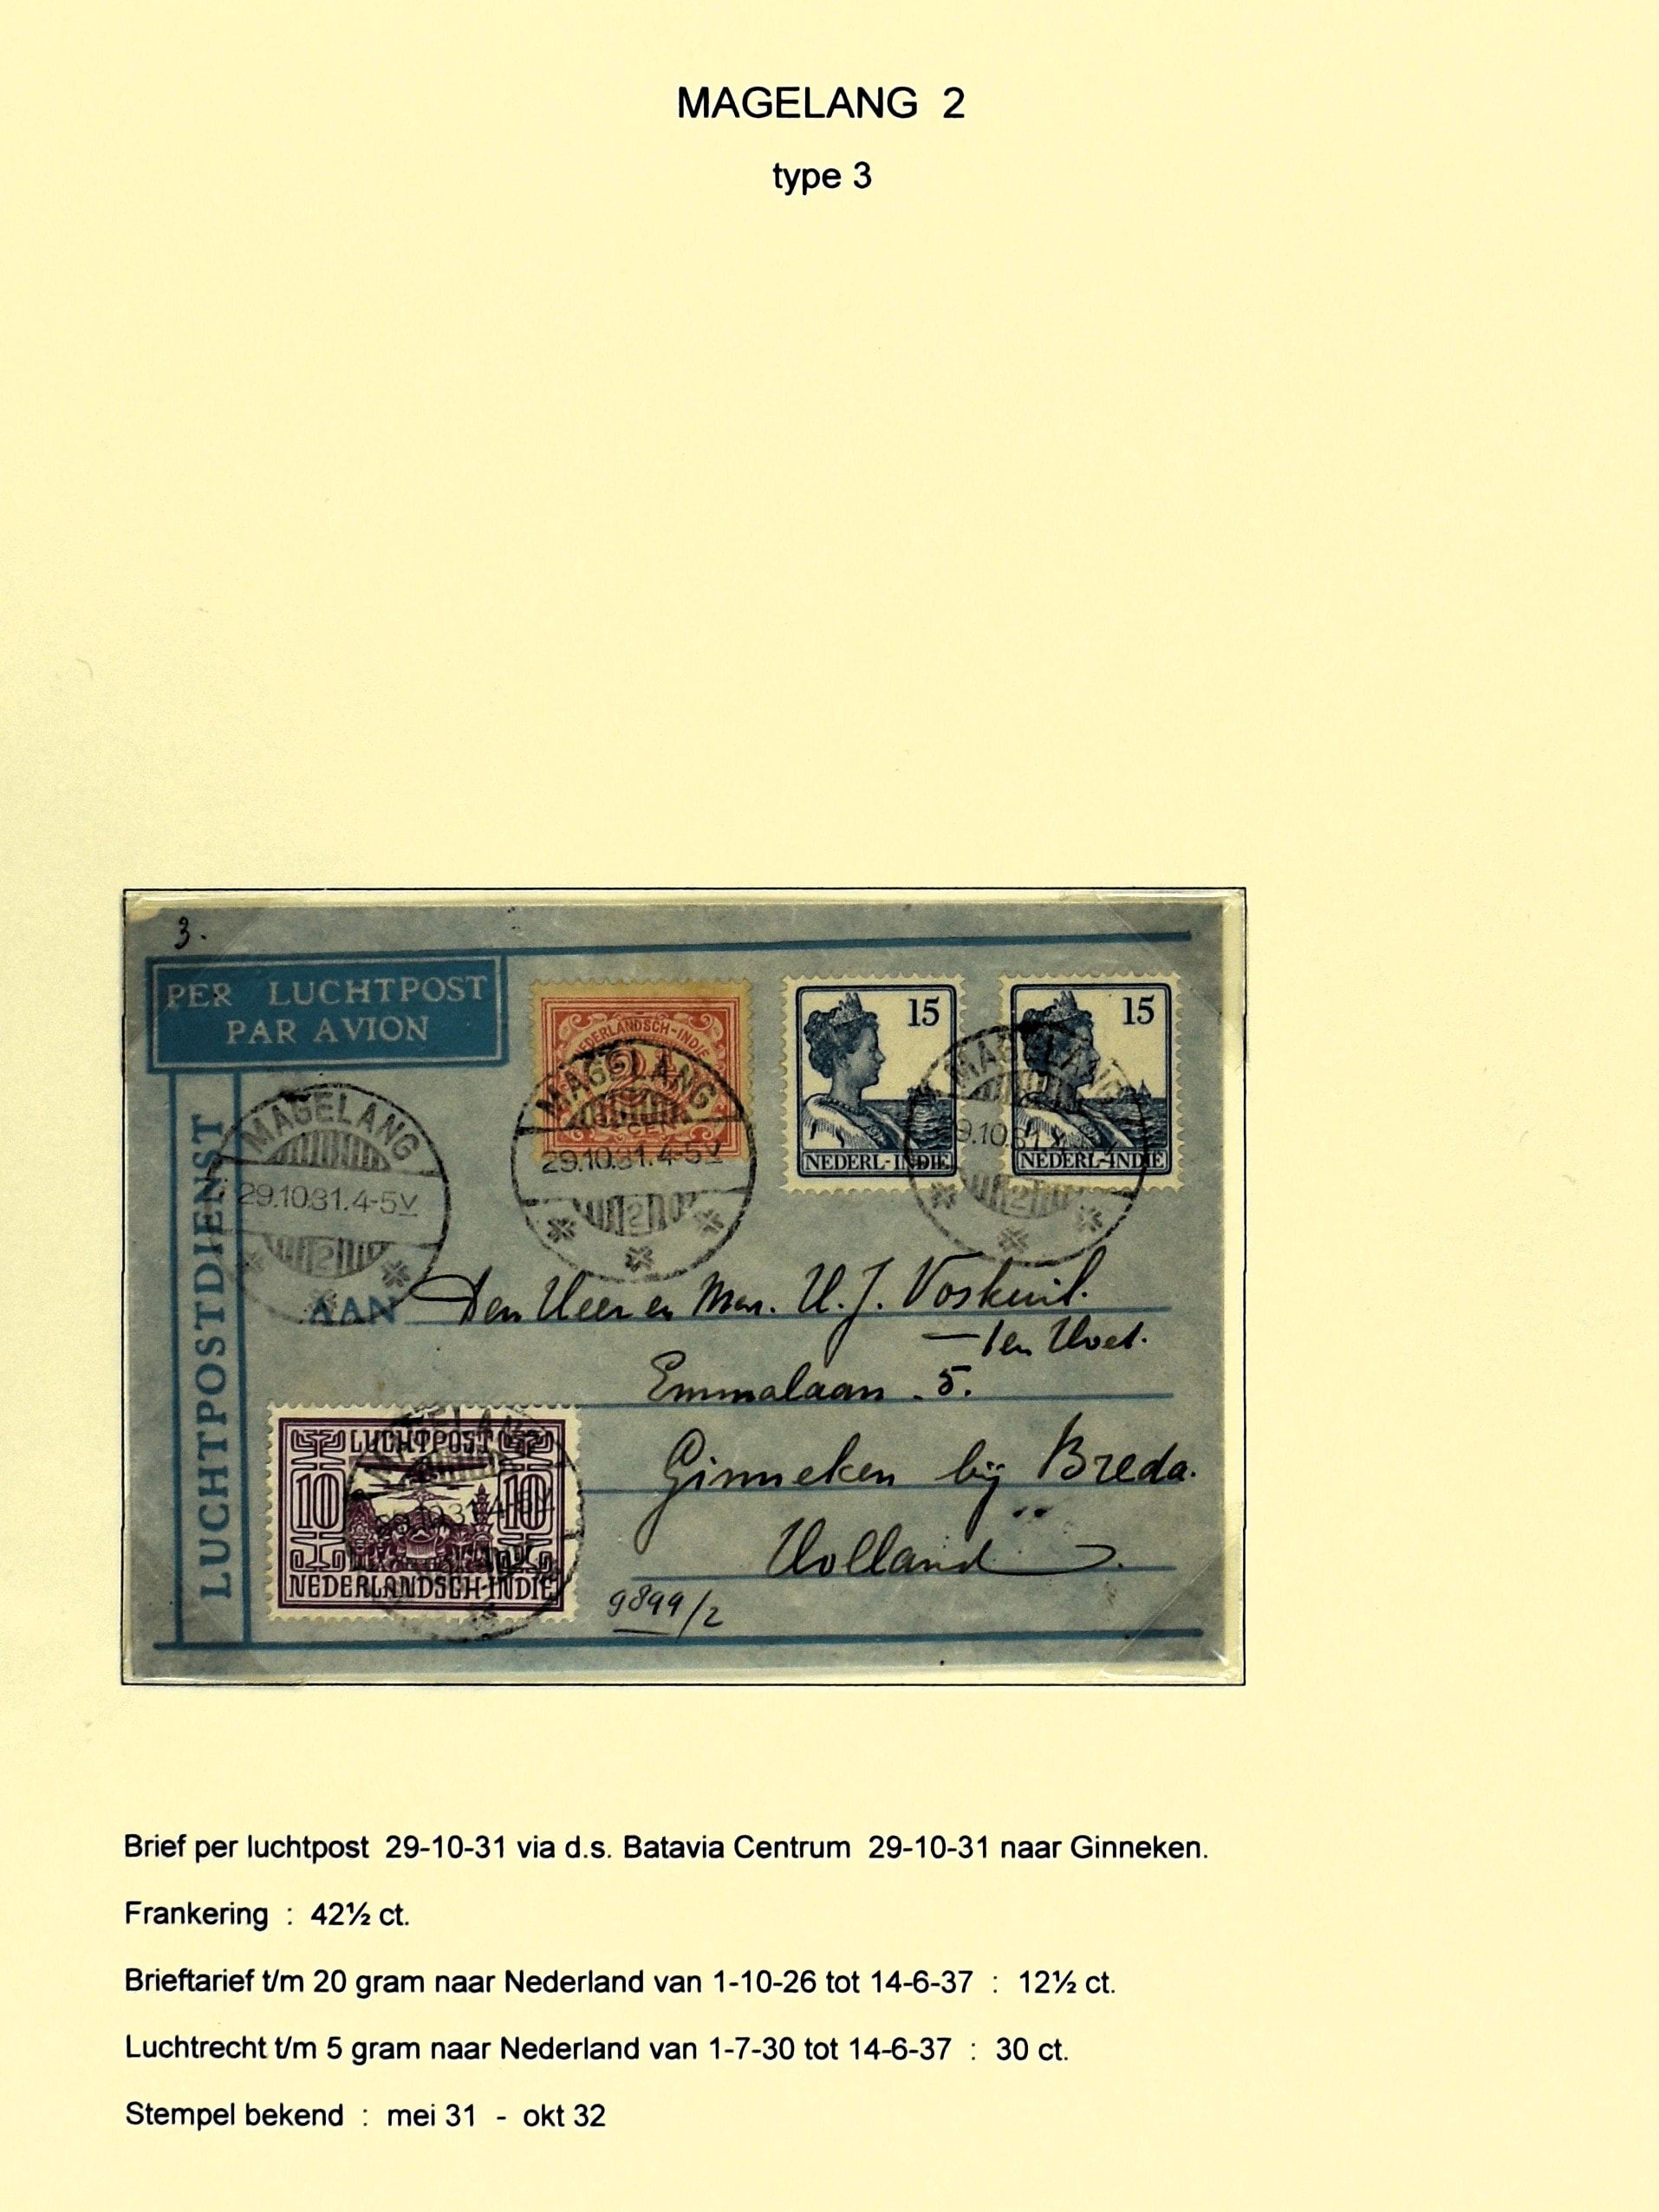 MAGELANG 2
type 3
3.
PER LUCHTPOST
PAR AVION
LUCHTPOSTDIENST
NEDERLANDSCH-INDIË
2½
CENT
15
NEDERL-INDIË
15
NEDERL-INDIË
MAGELANG
29.10.31.4-5V
2
MAGELANG
29.10.31.4-5V
2
MAGELANG
9.10.31
2
AAN Den Heer en Mevr. H. J. Voskuil.
— ten Hoet.
Emmalaan . 5.
Ginneken bij Breda.
Holland
LUCHTPOST
10 10
NEDERLANDSCH-INDIË
MAGELANG
29.10.31.4-5V
9899/2
Brief per luchtpost 29-10-31 via d.s. Batavia Centrum 29-10-31 naar Ginneken.
Frankering : 42½ ct.
Brieftarief t/m 20 gram naar Nederland van 1-10-26 tot 14-6-37 : 12½ ct.
Luchtrecht t/m 5 gram naar Nederland van 1-7-30 tot 14-6-37 : 30 ct.
Stempel bekend : mei 31 - okt 32